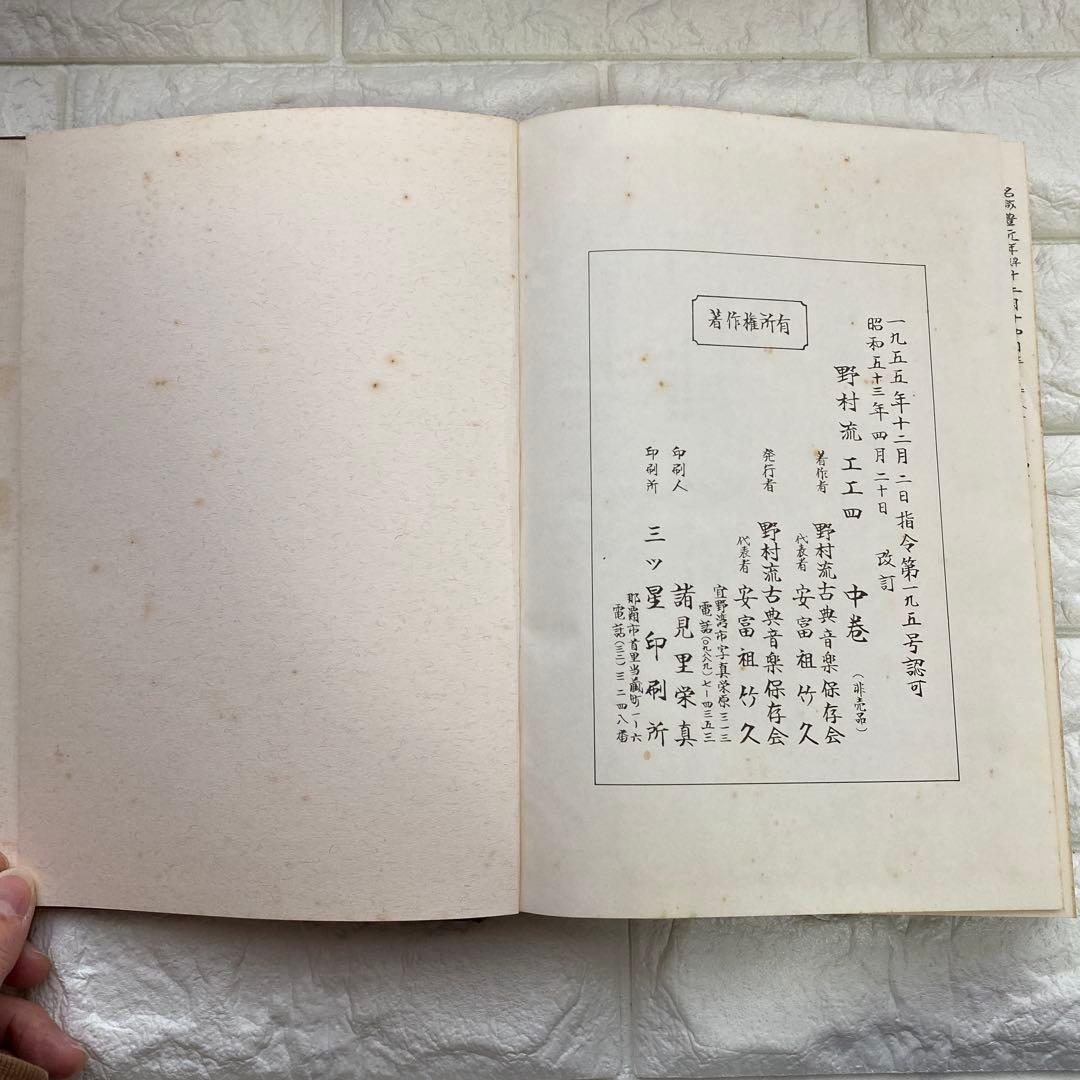 著作権所有
一九五五年十二月二日指令第一九五号認可
昭和五十三年四月二十日 改訂
野村流工工四 中巻 (非売品)
著作者 野村流古典音楽保存会
代表者 安富祖竹久
発行者 野村流古典音楽保存会
代表者 安富祖竹久
宜野湾市字真栄原三一三
電話(〇九八九)七ー四三五三
印刷人 諸見里栄真
印刷所 三ツ星印刷所
那覇市首里当蔵町一ー六
電話(三二)三二四八番